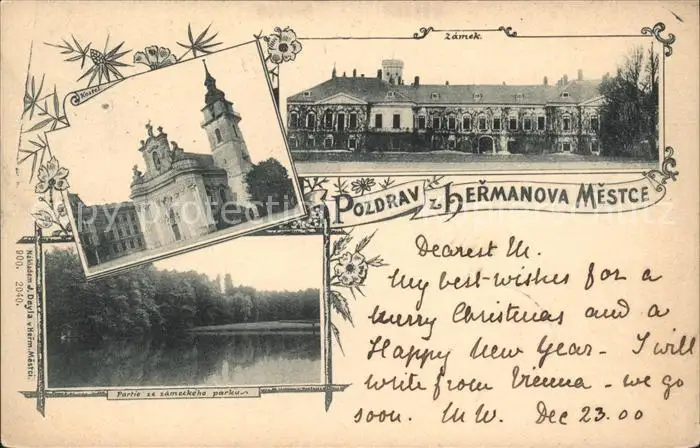 Kostel
Zámek.
POZDRAV z HEŘMANOVA MĚSTCE
Partie ze zámeckého parku
Nákladem J. Deyla v Heřm. Městci.
900. 2040.
Dearest M.
My best-wishes for a
merry Christmas and a
Happy New Year - I will
write from Vienna - we go
soon. M W. Dec 23.00